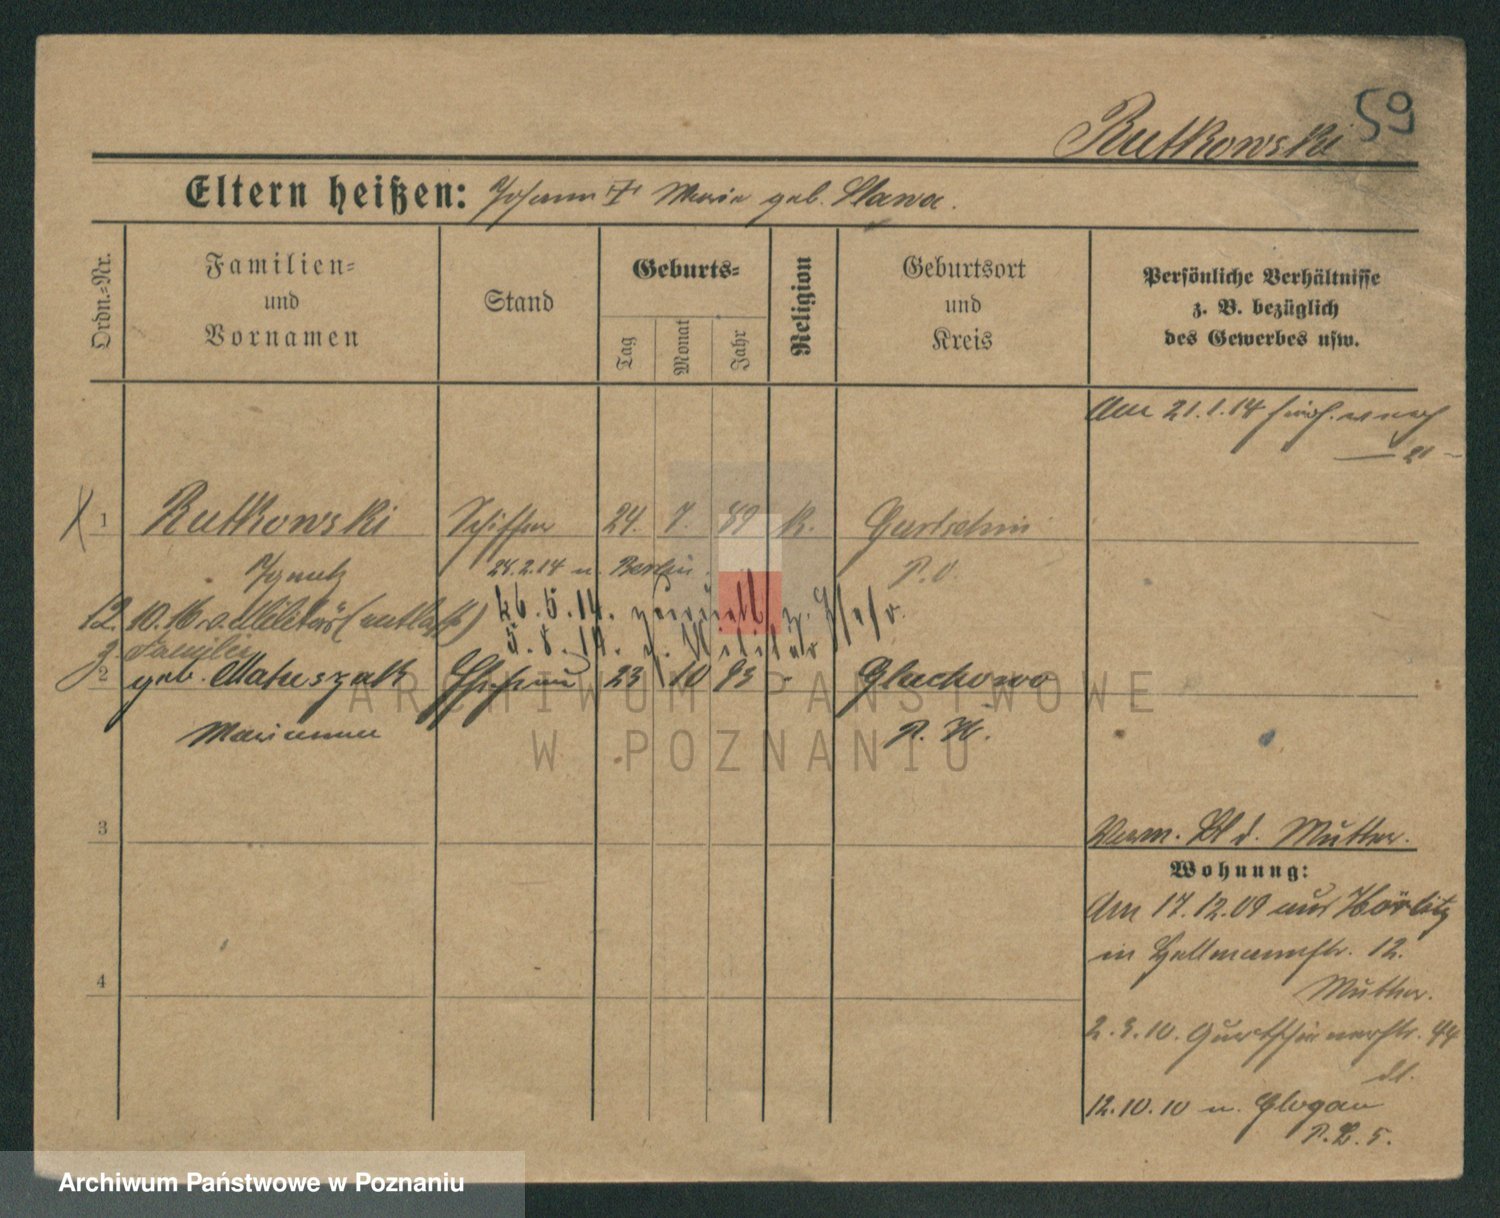 59
Rutkowski
Eltern heißen: Johann † Marie geb. Slawa.
Ordn.-Nr.
Familien-
und
Vornamen
Stand
Geburts-
Tag
Monat
Jahr
Religion
Geburtsort
und
Kreis
Persönliche Verhältnisse
z. B. bezüglich
des Gewerbes usw.
Am 21.1.14
21
1 Rutkowski Schiffer 24. 7. 89 k. Gurtschin
Ignatz 24.2.14 n. Berlin P. O.
12. 10. 16 v. Militär (entlass) 26. 5. 14. zurück z.
z. Familie 5. 8. 14. z. Militär
2 geb. Matuszak Ehefrau 23 10 93 - Gluchowo
Marianna P. W.
3
Verm. Bl d. Mutter.
Wohnung:
Am 17.12.09 aus Hörlitz
in Hellmannstr. 12.
Mutter.
2.3.10. Gurtschinerstr. 44
dl.
12.10.10 n. Glogau
P. L. 5.
4
ARCHIWUM PAŃSTWOWE
W POZNANIU
Archiwum Państwowe w Poznaniu